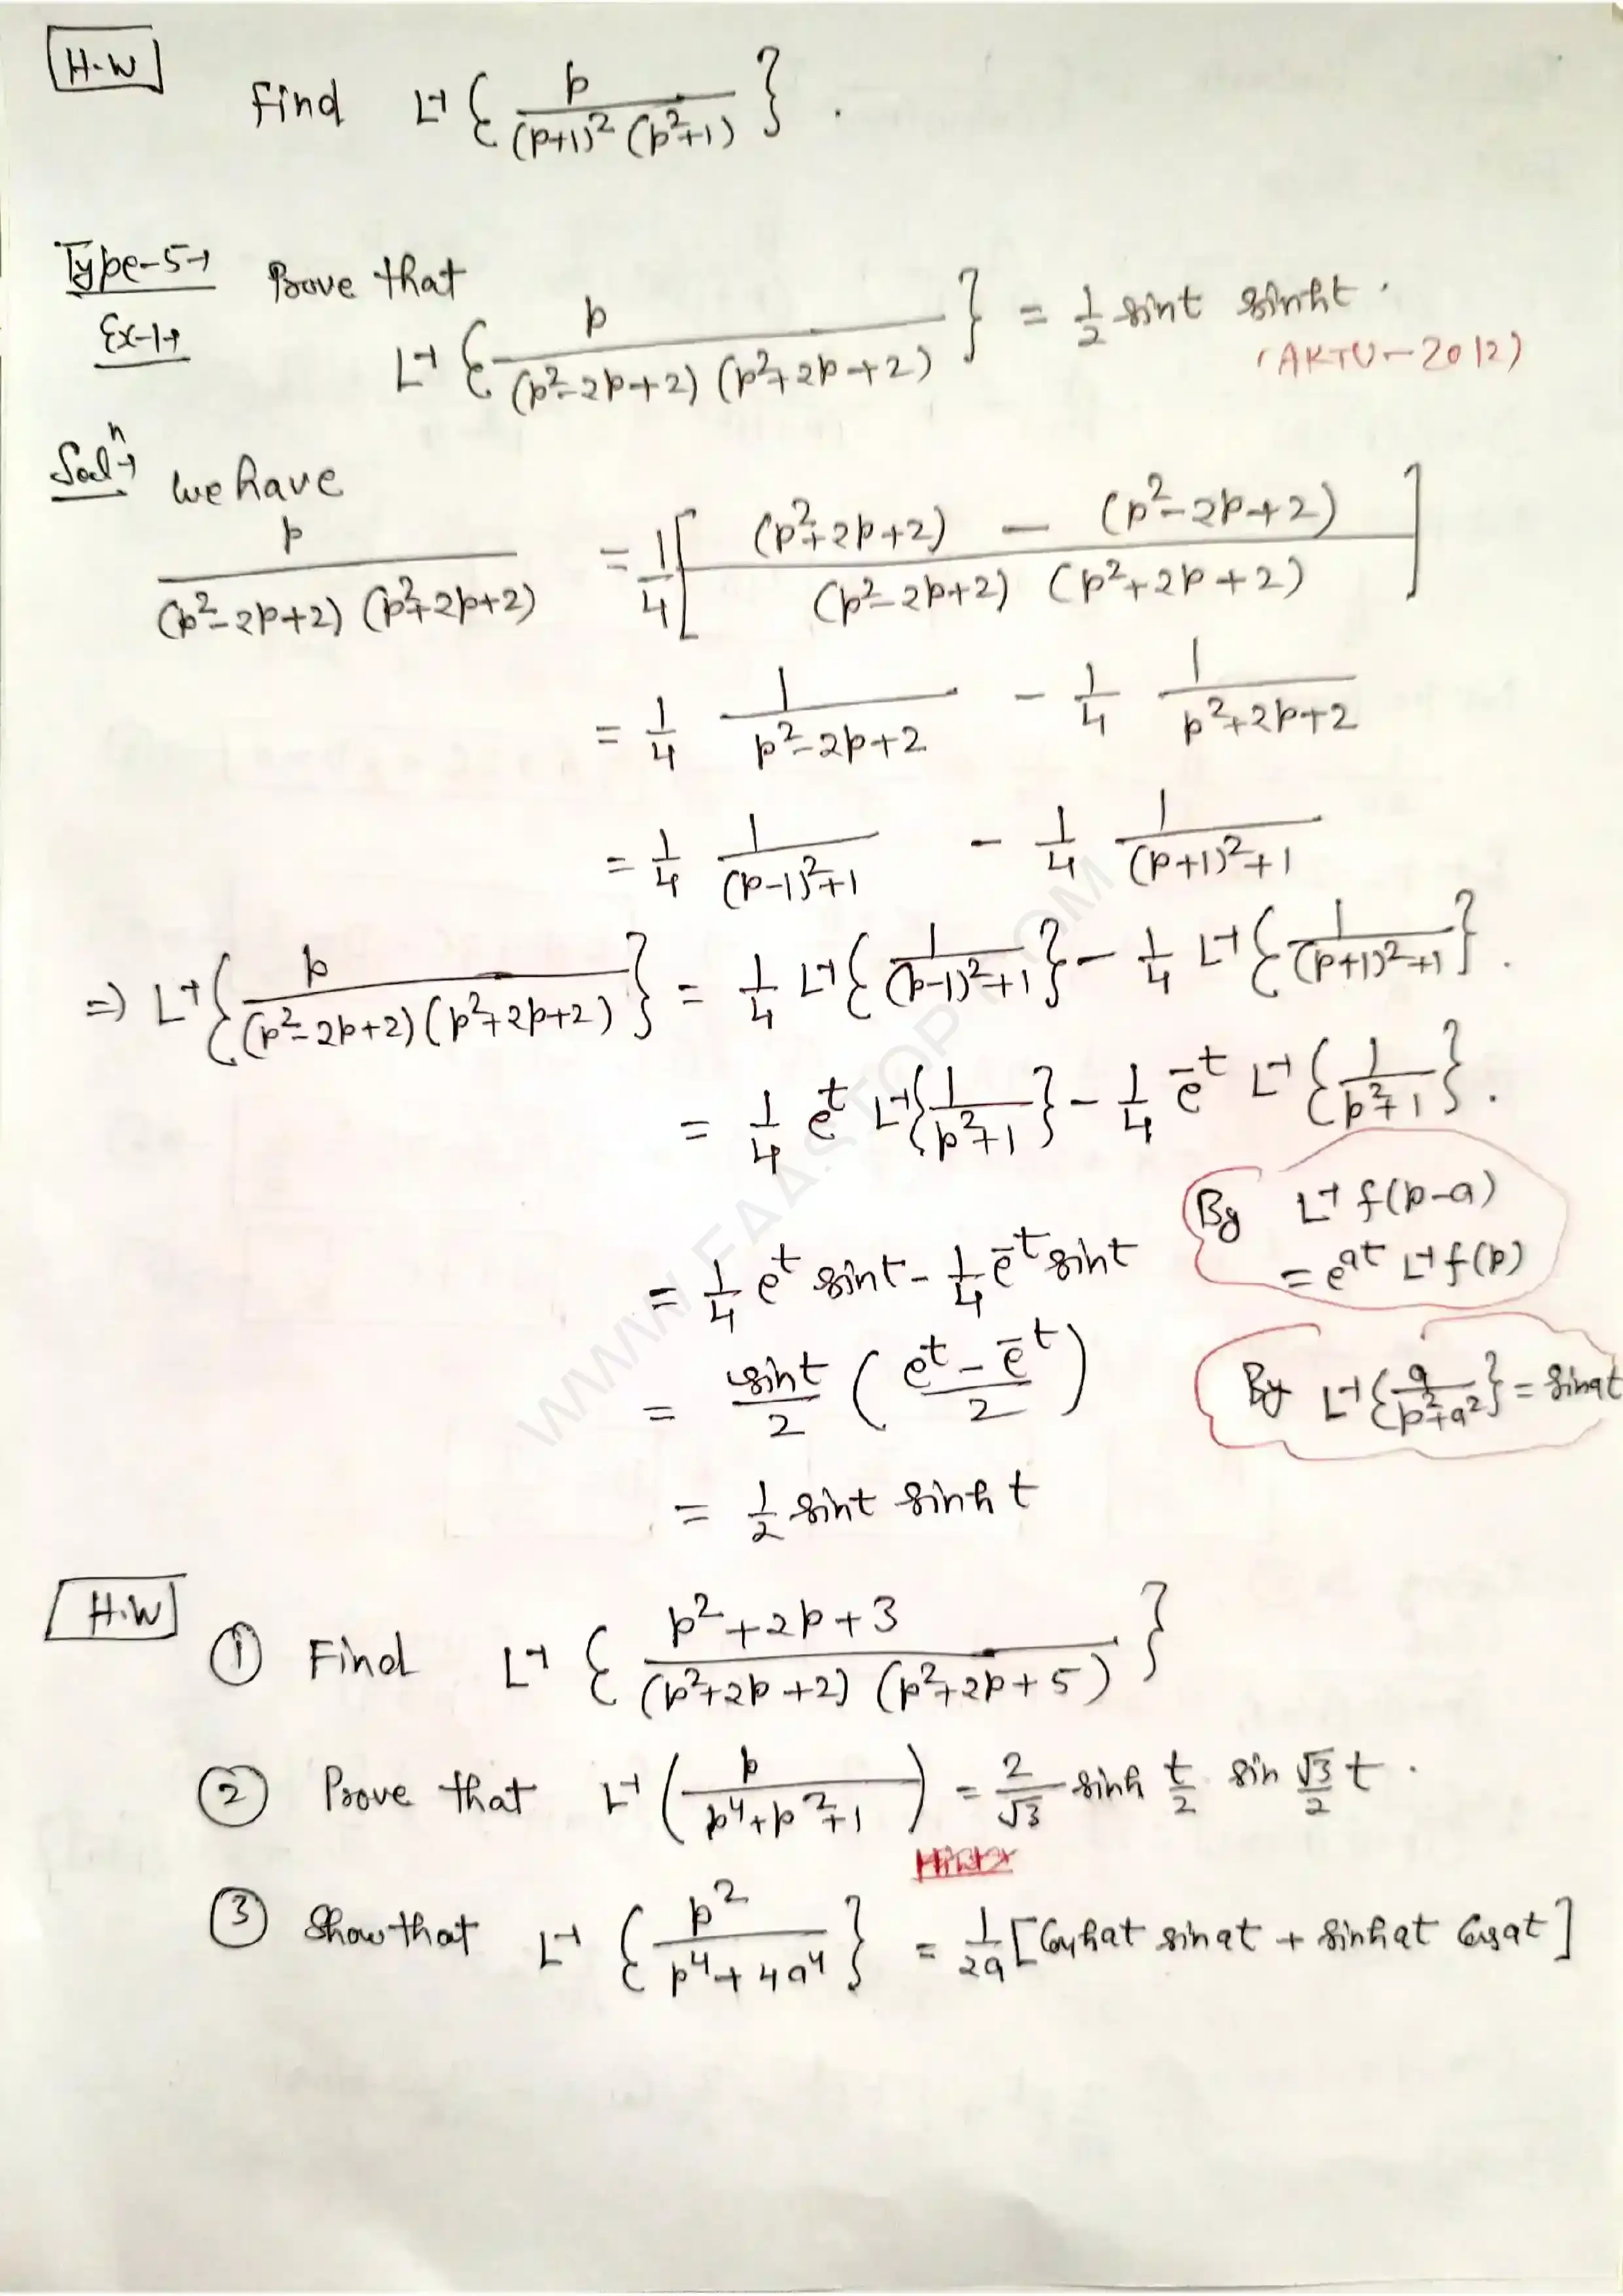 H.W
Find L⁻¹ { p / (p+1)² (p²+1) } .
Type-5→ Prove that
Ex-1→ L⁻¹ { p / (p²-2p+2) (p²+2p+2) } = 1/2 sint sinht .
(AKTU-2012)
Solⁿ→ we have
p / (p²-2p+2) (p²+2p+2) = 1/4 [ (p²+2p+2) - (p²-2p+2) / (p²-2p+2) (p²+2p+2) ]
= 1/4 1/p²-2p+2 - 1/4 1/p²+2p+2
= 1/4 1/(p-1)²+1 - 1/4 1/(p+1)²+1
⇒ L⁻¹ { p / (p²-2p+2) (p²+2p+2) } = 1/4 L⁻¹ { 1/(p-1)²+1 } - 1/4 L⁻¹ { 1/(p+1)²+1 } .
= 1/4 eᵗ L⁻¹ { 1/p²+1 } - 1/4 e⁻ᵗ L⁻¹ { 1/p²+1 } .
By L⁻¹ f(p-a)
= eᵃᵗ L⁻¹ f(p)
= 1/4 eᵗ sint - 1/4 e⁻ᵗ sint
= sint/2 ( eᵗ - e⁻ᵗ / 2 )
By L⁻¹ { a/p²+a² } = sinat
= 1/2 sint sinh t
H.W
① Find L⁻¹ { p²+2p+3 / (p²+2p+2) (p²+2p+5) }
② Prove that L⁻¹ ( p / p⁴+p²+1 ) = 2/√3 sinh t/2 sin √3/2 t .
③ Show that L⁻¹ { p² / p⁴+4a⁴ } = 1/2a [Coshat sinat + sinhat Cosat]